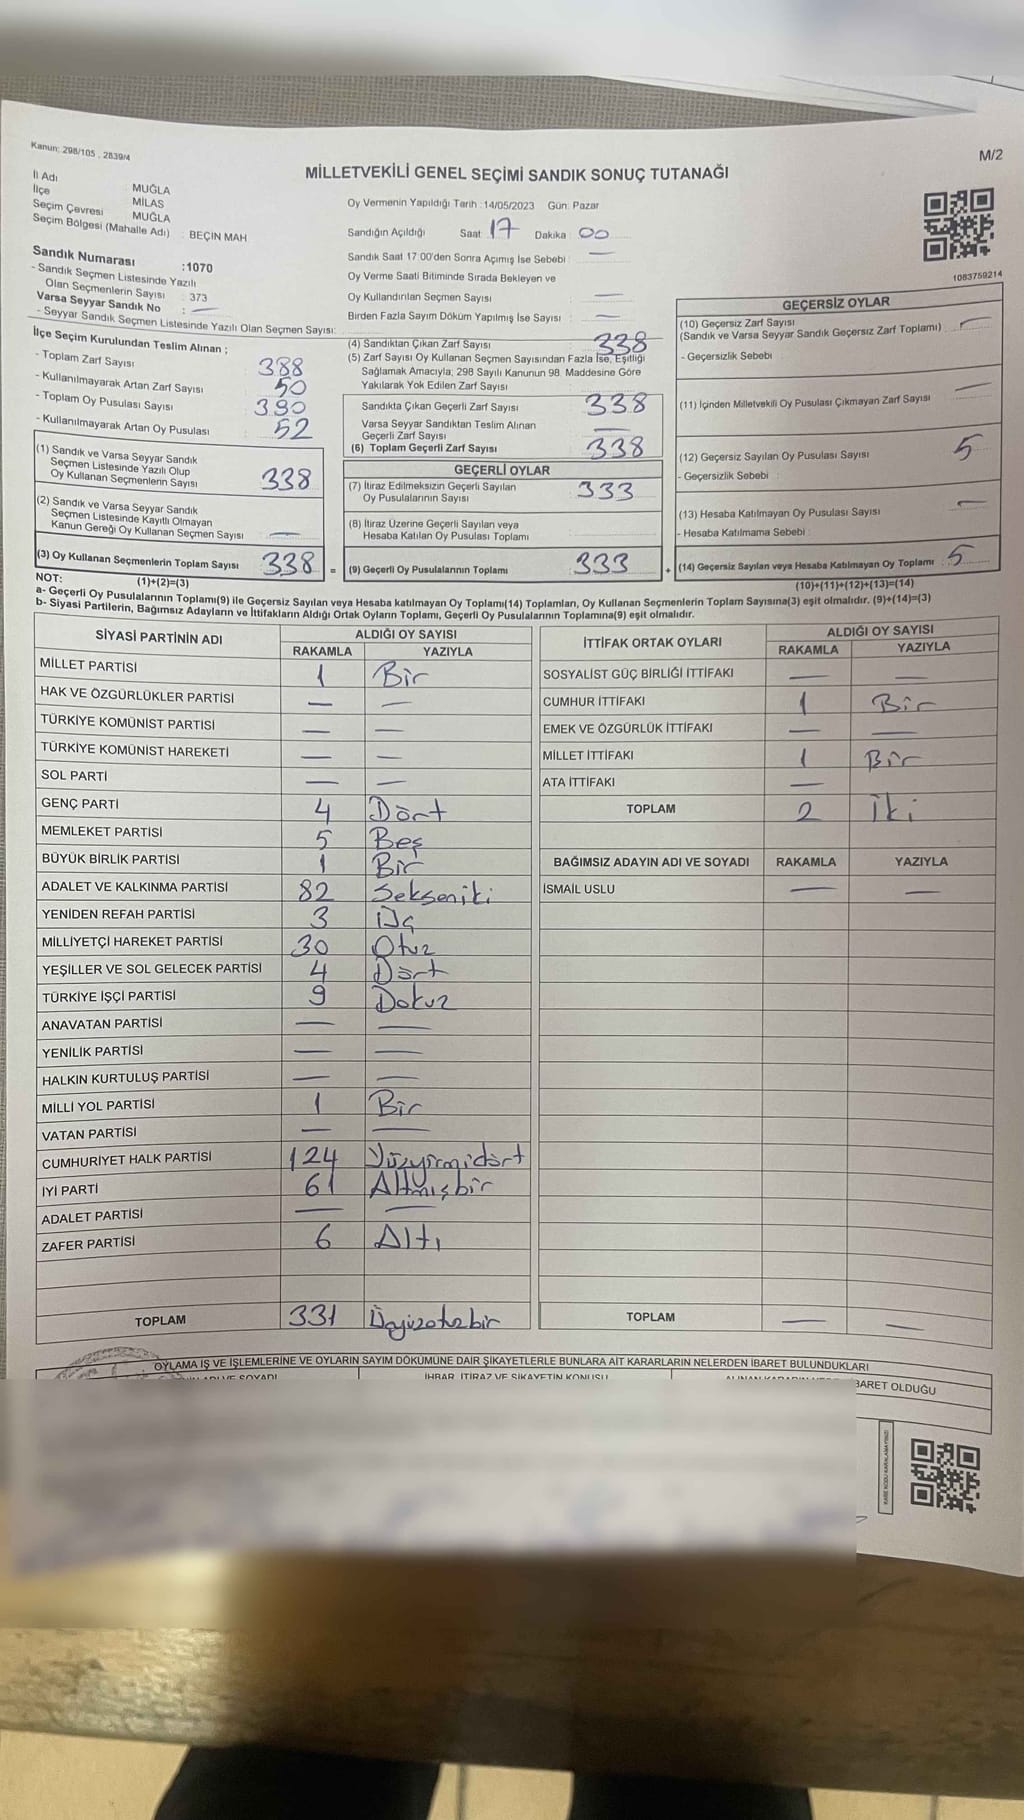 Kanun: 298/105 , 2839/4
M/2
MİLLETVEKİLİ GENEL SEÇİMİ SANDIK SONUÇ TUTANAĞI
İl Adı MUĞLA
İlçe MİLAS
Seçim Çevresi MUĞLA
Seçim Bölgesi (Mahalle Adı) : BEÇİN MAH
Sandık Numarası :1070
- Sandık Seçmen Listesinde Yazılı
Olan Seçmenlerin Sayısı : 373
Varsa Seyyar Sandık No : —
- Seyyar Sandık Seçmen Listesinde Yazılı Olan Seçmen Sayısı:
İlçe Seçim Kurulundan Teslim Alınan ;
- Toplam Zarf Sayısı 388
- Kullanılmayarak Artan Zarf Sayısı 50
- Toplam Oy Pusulası Sayısı 390
- Kullanılmayarak Artan Oy Pusulası 52
(1) Sandık ve Varsa Seyyar Sandık
Seçmen Listesinde Yazılı Olup
Oy Kullanan Seçmenlerin Sayısı 338
(2) Sandık ve Varsa Seyyar Sandık
Seçmen Listesinde Kayıtlı Olmayan
Kanun Gereği Oy Kullanan Seçmen Sayısı —
(3) Oy Kullanan Seçmenlerin Toplam Sayısı 338 =
Oy Vermenin Yapıldığı Tarih :14/05/2023 Gün: Pazar
Sandığın Açıldığı Saat 17 Dakika : 00
Sandık Saat 17.00'den Sonra Açımış İse Sebebi : —
Oy Verme Saati Bitiminde Sırada Bekleyen ve
Oy Kullandırılan Seçmen Sayısı —
Birden Fazla Sayım Döküm Yapılmış İse Sayısı —
(4) Sandıktan Çıkan Zarf Sayısı 338
(5) Zarf Sayısı Oy Kullanan Seçmen Sayısından Fazla İse, Eşitliği
Sağlamak Amacıyla; 298 Sayılı Kanunun 98. Maddesine Göre
Yakılarak Yok Edilen Zarf Sayısı
Sandıkta Çıkan Geçerli Zarf Sayısı 338
Varsa Seyyar Sandıktan Teslim Alınan
Geçerli Zarf Sayısı —
(6) Toplam Geçerli Zarf Sayısı 338
GEÇERLİ OYLAR
(7) İtiraz Edilmeksizin Geçerli Sayılan
Oy Pusulalarının Sayısı 333
(8) İtiraz Üzerine Geçerli Sayılan veya
Hesaba Katılan Oy Pusulası Toplamı
(9) Geçerli Oy Pusulalarının Toplamı 333 +
1083759214
GEÇERSİZ OYLAR
(10) Geçersiz Zarf Sayısı —
(Sandık ve Varsa Seyyar Sandık Geçersiz Zarf Toplamı)
- Geçersizlik Sebebi
(11) İçinden Milletvekili Oy Pusulası Çıkmayan Zarf Sayısı —
(12) Geçersiz Sayılan Oy Pusulası Sayısı 5
- Geçersizlik Sebebi :
(13) Hesaba Katılmayan Oy Pusulası Sayısı —
- Hesaba Katılmama Sebebi :
(14) Geçersiz Sayılan veya Hesaba Katılmayan Oy Toplamı 5
NOT: (1)+(2)=(3) (10)+(11)+(12)+(13)=(14)
a- Geçerli Oy Pusulalarının Toplamı(9) ile Geçersiz Sayılan veya Hesaba katılmayan Oy Toplamı(14) Toplamları, Oy Kullanan Seçmenlerin Toplam Sayısına(3) eşit olmalıdır. (9)+(14)=(3)
b- Siyasi Partilerin, Bağımsız Adayların ve İttifakların Aldığı Ortak Oyların Toplamı, Geçerli Oy Pusulalarının Toplamına(9) eşit olmalıdır.
SİYASİ PARTİNİN ADI ALDIĞI OY SAYISI
RAKAMLA YAZIYLA
MİLLET PARTİSİ 1 Bir
HAK VE ÖZGÜRLÜKLER PARTİSİ — —
TÜRKİYE KOMÜNİST PARTİSİ — —
TÜRKİYE KOMÜNİST HAREKETİ — —
SOL PARTİ — —
GENÇ PARTİ 4 Dört
MEMLEKET PARTİSİ 5 Beş
BÜYÜK BİRLİK PARTİSİ 1 Bir
ADALET VE KALKINMA PARTİSİ 82 Sekseniki
YENİDEN REFAH PARTİSİ 3 Üç
MİLLİYETÇİ HAREKET PARTİSİ 30 Otuz
YEŞİLLER VE SOL GELECEK PARTİSİ 4 Dört
TÜRKİYE İŞÇİ PARTİSİ 9 Dokuz
ANAVATAN PARTİSİ — —
YENİLİK PARTİSİ — —
HALKIN KURTULUŞ PARTİSİ — —
MİLLİ YOL PARTİSİ 1 Bir
VATAN PARTİSİ — —
CUMHURİYET HALK PARTİSİ 124 Yüzyirmidört
İYİ PARTİ 61 Altmışbir
ADALET PARTİSİ — —
ZAFER PARTİSİ 6 Altı
TOPLAM 331 Üçyüzotuzbir
İTTİFAK ORTAK OYLARI ALDIĞI OY SAYISI
RAKAMLA YAZIYLA
SOSYALİST GÜÇ BİRLİĞİ İTTİFAKI — —
CUMHUR İTTİFAKI 1 Bir
EMEK VE ÖZGÜRLÜK İTTİFAKI — —
MİLLET İTTİFAKI 1 Bir
ATA İTTİFAKI —
TOPLAM 2 İki
BAĞIMSIZ ADAYIN ADI VE SOYADI RAKAMLA YAZIYLA
İSMAİL USLU — —
TOPLAM — —
OYLAMA İŞ VE İŞLEMLERİNE VE OYLARIN SAYIM DÖKÜMÜNE DAİR ŞİKAYETLERLE BUNLARA AİT KARARLARIN NELERDEN İBARET BULUNDUKLARI
İHBAR, İTİRAZ VE ŞİKAYETİN KONUSU
BARET OLDUĞU